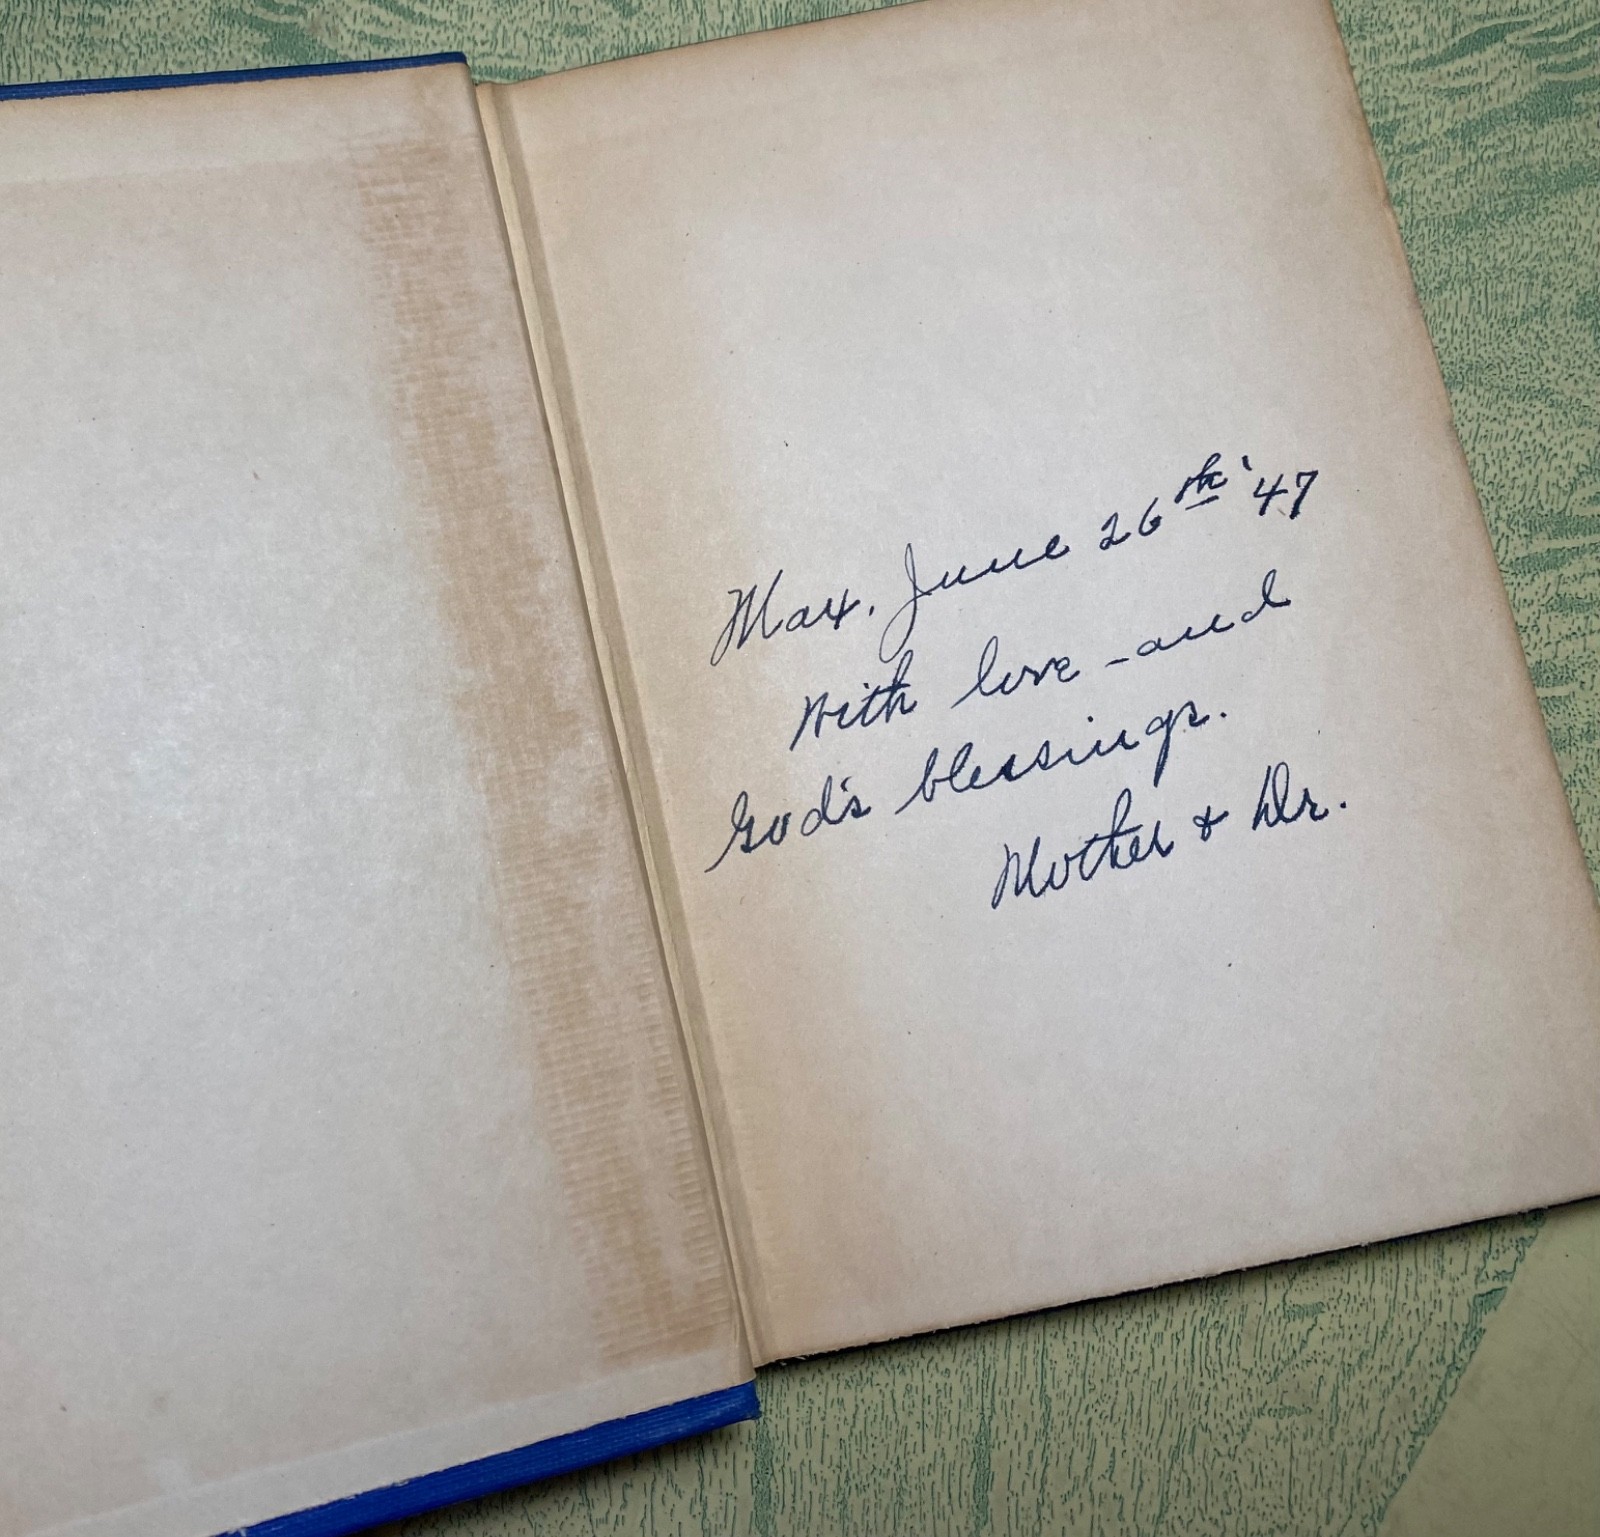 Max. June 26th '47
With love - and
God's blessings.
Mother & Dr.